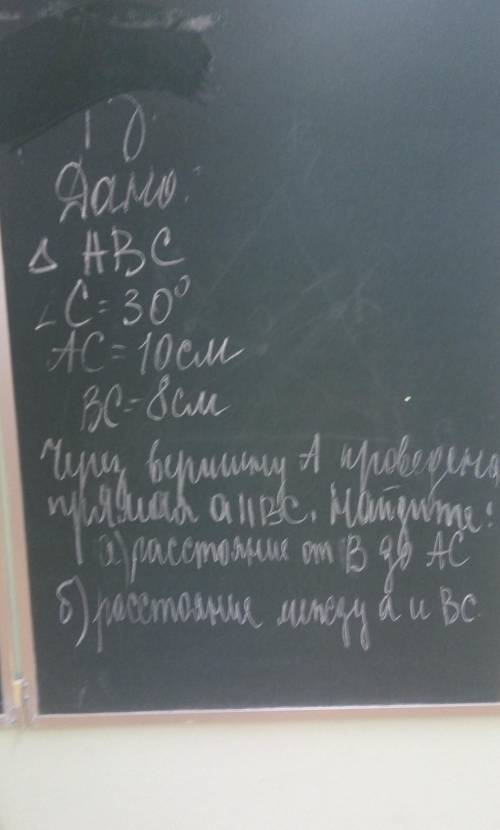 Дано:
Δ ABC
∠C = 30°
AC = 10 см
BC = 8 см
Через вершину A проведена
прямая a || BC. Найдите:
а) расстояние от B до AC
б) расстояние между a и BC